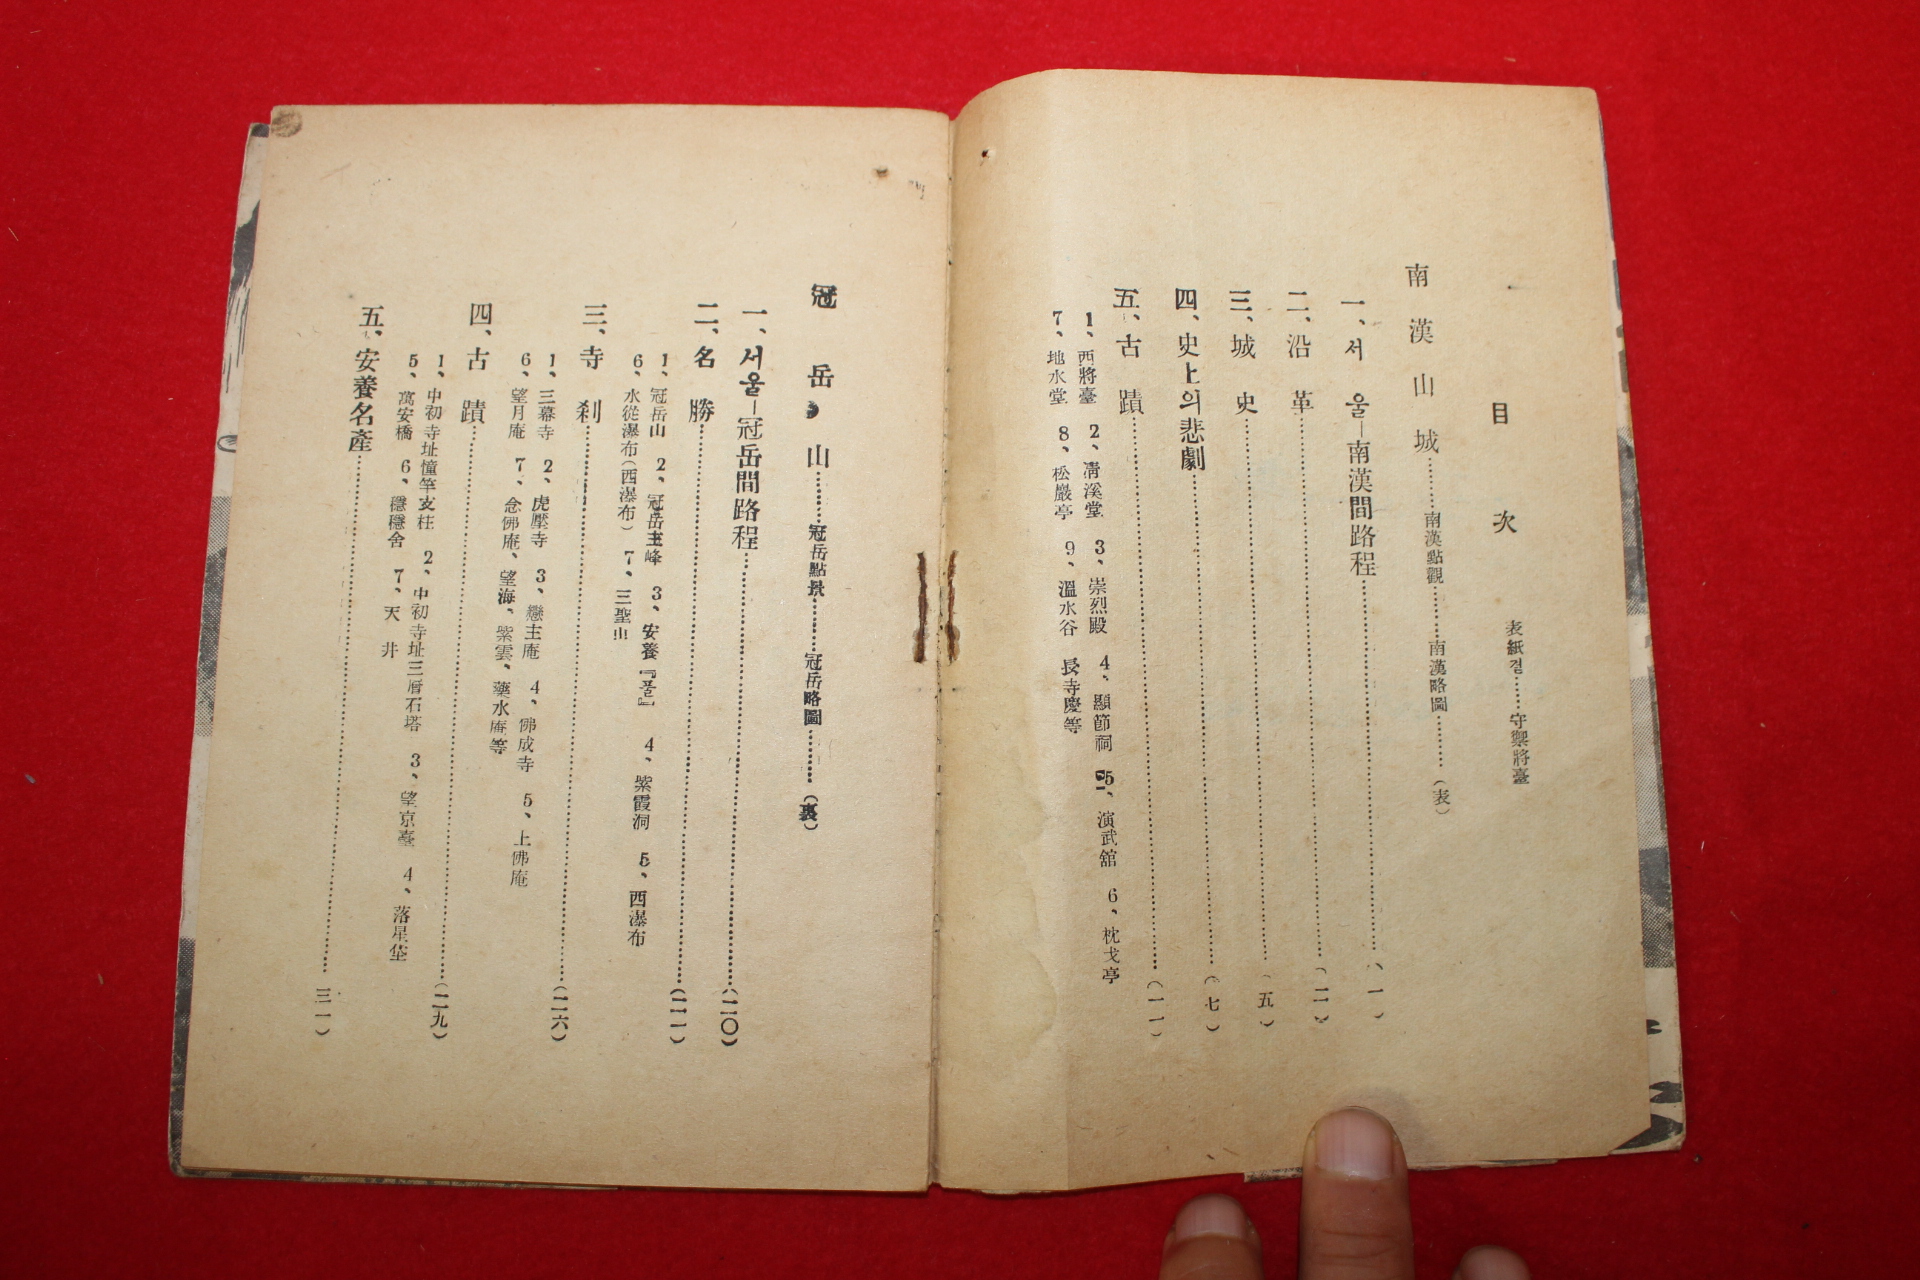 目次
表紙결……守禦將臺
南漢山城………南漢點觀………南漢略圖………(表)
一、서울―南漢間路程………(一)
二、沿革………(二)
三、城史………(五)
四、史上의悲劇………(七)
五、古蹟………(一一)
1、西將臺 2、淸溪堂 3、崇烈殿 4、顯節祠 5、演武舘 6、枕戈亭
7、地水堂 8、松巖亭 9、溫水谷 長寺慶等
冠岳山………冠岳點景………冠岳略圖………(裏)
一、서울―冠岳間路程………(二〇)
二、名勝………(二一)
1、冠岳山 2、冠岳主峰 3、安養『풀』 4、紫霞洞 5、西瀑布
6、水從瀑布(西瀑布) 7、三聖山
三、寺刹………(二六)
1、三幕寺 2、虎壓寺 3、戀主庵 4、佛成寺 5、上佛庵
6、望月庵 7、念佛庵、望海、紫雲、藥水庵等
四、古蹟………(二九)
1、中初寺址憧竿支柱 2、中初寺址三層石塔 3、望京臺 4、落星垈
5、萬安橋 6、穩穩舍 7、天井
五、安養名產………三一)